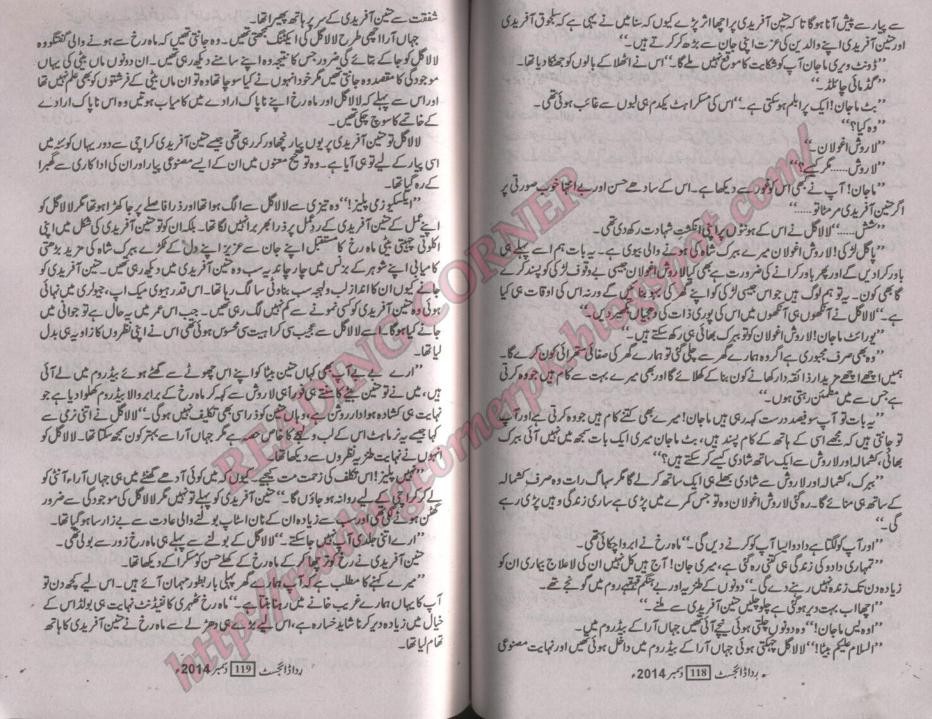 سے پیار سے پیش آنا ہوگا تا کہ حنین آفریدی پر اچھا اثر پڑے کیوں کہ سنا میں نے یہی ہے کہ سلجوق آفریدی
اور حنین آفریدی اپنے والدین کی عزت اپنی جان سے بڑھ کر کرتے ہیں۔“
”ڈونٹ وری ماجان آپ کو شکایت کا موقع نہیں ملے گا۔“ اس نے اٹھلا کے بالوں کو جھٹکا دیا تھا۔
”گڈ مائی چائلڈ۔“
”بٹ ماجان! ایک پرابلم ہوسکتی ہے۔“ اس کی مسکراہٹ یکدم ہی لبوں سے غائب ہوئی تھی۔
”وہ کیا؟“
”لاروش اغولان۔“
”لاروش..... مگر کیسے؟“
”ماجان! آپ نے بھی اس کو غور سے دیکھا ہے۔ اس کے سادھے حسن اور بے انتہا خوب صورتی پر
اگر حنین آفریدی مر مٹا تو.....“
”شش.....“ لالا گل نے اس کے ہونٹوں پر اپنی انگشت شہادت رکھ دی تھی۔
”پاگل لڑکی! لاروش اغولان میرے ببرک شاہ کی ہونے والی بیوی ہے۔ یہ بات ہم اسے پہلے ہی
باور کرا دیں گے اور پھر باور کرانے کی ضرورت ہے بھی کیا لاروش اغولان جیسی بے وقوف لڑکی کو پسند کرے
گا بھی کون۔ یہ تو ہم لوگ ہیں جو اس جیسی لڑکی کو اپنے گھر کی بہو بنائیں گے ورنہ اس کی اوقات ہی کیا
ہے۔“ لالا گل نے آنکھوں ہی آنکھوں میں اس کی پوری ذات کی دھجیاں بکھیر دیں۔“
”یو رائٹ ماجان! لاروش اغولان کو تو ببرک بھائی ہی رکھ سکتے ہیں۔“
”وہ بھی صرف مجبوری ہے اگر وہ ہمارے گھر سے چلی گئی تو ہمارے گھر کی صفائی ستھرائی کون کرے گا۔
ہمیں اچھے اچھے مزیدار ذائقہ دار کھانے کون بنا کے کھلائے گا اور بھی میرے بہت سے کام ہیں جو وہ کرتی
ہے جس سے میں مطمئن رہتی ہوں۔“
”یہ بات تو آپ سو فیصد درست کہہ رہی ہیں ماجان! میرے بھی کتنے کام ہیں جو وہ کرتی ہے اور آپ
تو جانتی ہیں کہ مجھے اسی کے ہاتھ کے کام پسند ہیں، بٹ ماجان میری ایک بات سمجھ میں نہیں آئی ببرک
بھائی، کشمالہ اور لاروش سے ایک ساتھ شادی کیسے کر سکتے ہیں؟“
”ببرک، کشمالہ اور لاروش سے شادی بھلے ہی ایک ساتھ کرلے گا مگر سہاگ رات وہ صرف کشمالہ
کے ساتھ ہی منائے گا۔ رہ گئی لاروش اغولان وہ تو جس کمرے میں پڑی ہے ساری زندگی وہیں پڑی رہے
گی۔“
”اور آپ کو لگتا ہے دادو ایسا آپ کو کرنے دیں گی۔“ ماہ رخ نے ابرو اچکائی تھی۔
”تمہاری دادو کی زندگی ہی کتنی رہ گئی ہے، میری جان! آج ہیں کل نہیں ان کی لا علاج بیماری ان کو
زیادہ دن تک زندہ نہیں رہنے دے گی۔“ دونوں کے طنزیہ اور بے ہنگم قہقہے روم میں گونجے تھے۔
”اچھا اب بہت دیر ہوگئی ہے چلو چلیں حنین آفریدی سے ملنے۔“
”اوہ یس ماجان!“ وہ دونوں چلتی ہوئی نیچے آئی تھیں جہاں آرا کے بیڈ روم میں۔
”السلام علیکم بیٹا!“ لالا گل چہکتی ہوئی جہاں آرا کے بیڈ روم میں داخل ہوئی تھیں اور نہایت مصنوعی
ردا ڈائجسٹ 118 دسمبر 2014ء
شفقت سے حنین آفریدی کے سر پر ہاتھ پھیرا تھا۔
جہاں آرا اچھی طرح لالا گل کی ایکٹنگ سمجھتی تھیں۔ وہ جانتی تھیں کہ ماہ رخ سے ہونے والی گفتگو وہ
لالا گل کو جا کے بتائے گی ضرور جس کا نتیجہ وہ اپنے سامنے دیکھ رہی تھیں۔ ان دونوں ماں بیٹی کی یہاں
موجودگی کا مقصد وہ جانتی تھیں مگر خود انہوں نے کیا سوچا تھا وہ تو ان ماں بیٹی کے فرشتوں کو بھی علم نہیں تھا
اور اس سے پہلے کہ لالا گل اور ماہ رخ اپنے ناپاک ارادے میں کامیاب ہوتیں وہ اس ناپاک ارادے
کے خاتمے کا سوچ چکی تھیں۔
لالا گل تو حنین آفریدی پر یوں پیار نچھاور کر رہی تھی جیسے حنین آفریدی کراچی سے دور یہاں کوئٹہ میں
اسی پیار کے لیے تو ہی آیا ہے۔ وہ تو صحیح معنوں میں ان کے ایسے مصنوعی پیار اور ان کی اداکاری سے گھبرا
کے رہ گیا تھا۔
”ایکسکیوز می پلیز!“ وہ تیزی سے لالا گل سے الگ ہوا تھا اور ذرا فاصلے پر جا کھڑا ہوا تھا مگر لالا گل کو
اپنے عمل کے حنین آفریدی کے رد عمل پر ذرا بھر برا نہیں لگا تھا۔ بلکہ ان کو تو حنین آفریدی کی شکل میں اپنی
اکلوتی چہیتی بیٹی ماہ رخ کا مستقبل اپنے جان سے عزیز اپنے دل کے ٹکڑے ببرک شاہ کی مزید بڑھتی
کامیابی اپنے شوہر کے بزنس میں چار چاند یہ سب وہ حنین آفریدی میں دیکھ رہی تھیں۔ حنین آفریدی کو
جانے کیوں ان کا انداز لب ولہجہ سب بناوٹی سا لگ رہا تھا۔ اس قدر ہیوی میک اپ، جیولری میں نہائی
ہوئی وہ حنین آفریدی کو کسی نمونے سے کم نہیں لگ رہی تھیں۔ جب اس عمر میں یہ حال ہے تو جوانی میں
جانے کیا ہوگا۔ اسے لالا گل سے عجیب سی کراہیت سی محسوس ہوئی تھی اس نے اپنی نظروں کا زاویہ ہی بدل
لیا تھا۔
”ارے بے بے آپ بھی کہاں حنین بیٹا کو اپنے اس چھوٹے سے گھٹے ہوئے بیڈ روم میں لے آئی
ہیں، میں نے تو حنین بیٹے کے سنتے ہی اور بھی لاروش سے کہہ کر ماہ رخ کے برابر والا بیڈ روم کھلوا دیا ہے جو
نہایت ہی کشادہ ہوادار روشن ہے، وہاں حنین کو ذرا سی بھی تکلیف نہیں ہوگی۔“ لالا گل نے اتنی نرمی سے
کہا جیسے یہ نرماہٹ اس کے لب و لہجے کا خاص حصہ ہے مگر جہاں آرا سے بہتر کون سمجھ سکتا تھا۔ لالا گل کو
انہوں نے نہایت طنزیہ نظروں سے دیکھا تھا۔
”نہیں پلیز! اس تکلف کی زحمت مت کیجیے۔ کیوں کہ میں کوئی آدھے گھنٹے میں ہی جہاں آرا، آنٹی کو
لے کر کراچی کے لیے روانہ ہو جاؤں گا۔“ حنین آفریدی کو پہلے تو نہیں مگر لالا گل کی موجودگی سے ضرور
گھٹن ہونے لگی تھی اور سب سے زیادہ ان کے نان اسٹاپ بولنے والی عادت سے بے زار سا ہو گیا تھا۔
”ارے اتنی جلدی آپ نہیں جا سکتے۔“ لالا گل کے بولنے سے پہلے ہی ماہ رخ زور سے بولی تھی۔
حنین آفریدی نے رخ موڑ کر ماہ رخ کے کھلے حسن کو مسکرا کے دیکھا تھا۔
”میرے کہنے کا مطلب ہے کہ آپ ہمارے گھر پہلی بار بطور مہمان آئے ہیں۔ اس لیے کچھ دن تو
آپ کا یہاں ہمارے غریب خانے میں رہنا بنتا ہے۔“ ماہ رخ ٹھہری کانفیڈنٹ نہایت ہی بولڈ اس کے
خیال میں زیادہ دیر کرنا شاید خسارہ ہے، اس لیے بڑے ہی دھڑلے سے ماہ رخ نے حنین آفریدی کا ہاتھ
تھام لیا تھا۔
ردا ڈائجسٹ 119 دسمبر 2014ء
READING CORNER
http://readingcornerpk.blogspot.com/